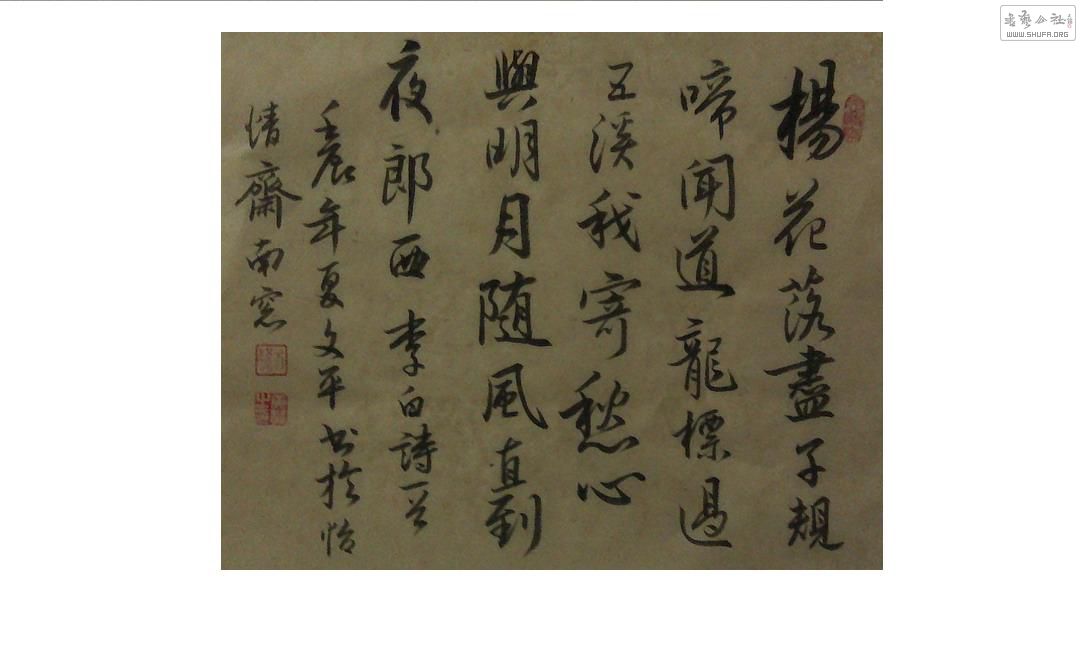 楊花落盡子規
啼聞道龍標過
五溪我寄愁心
與明月随風直到
夜郎西 李白詩一首
壬辰年夏文平书於怡
情齋南窓
書藝公社
WWW.SHUFA.ORG